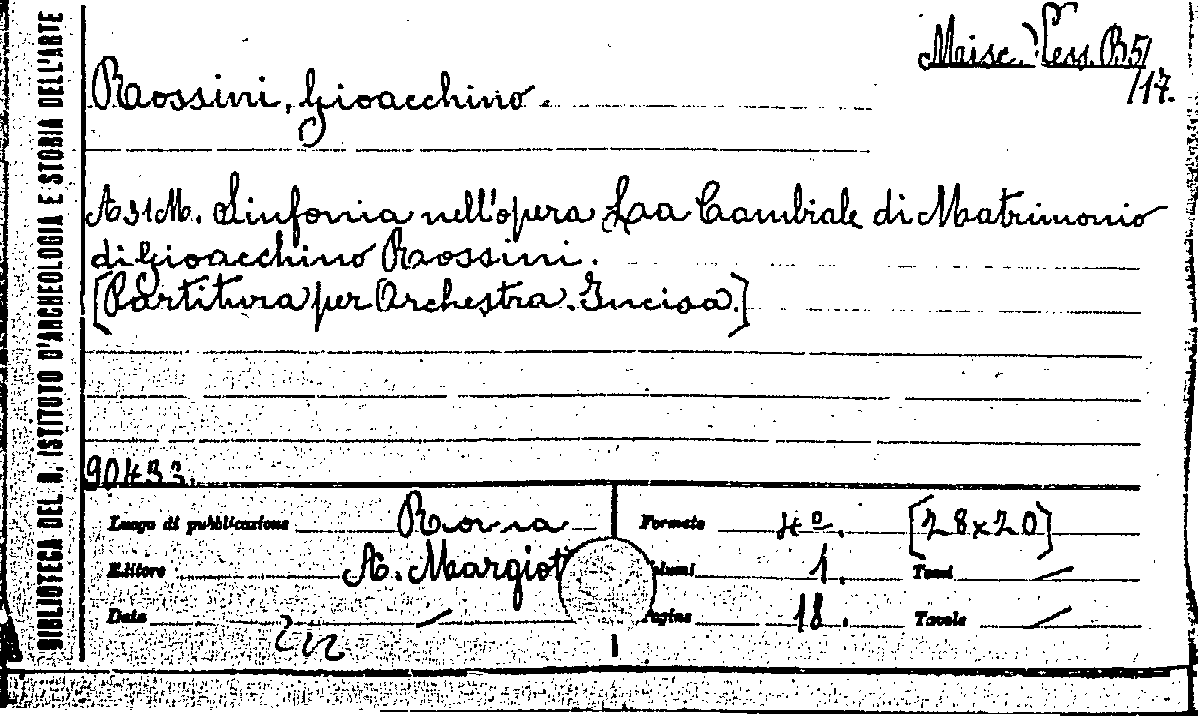 BIBLIOTECA DEL R. ISTITUTO D'ARCHEOLOGIA E STORIA DELL'ARTE
Misc. Vess. B5/
/17.
Rossini, Gioacchino.
A 31 M. Sinfonia nell'opera La Cambiale di Matrimonio
di Gioacchino Rossini.
[Partitura per Orchestra. Incisa.]
90433.
Luogo di pubblicazione Roma Formato 4º. [28x20]
Editore A. Margiot Volumi 1. Tomi /
Data / Pagine 18. Tavole /